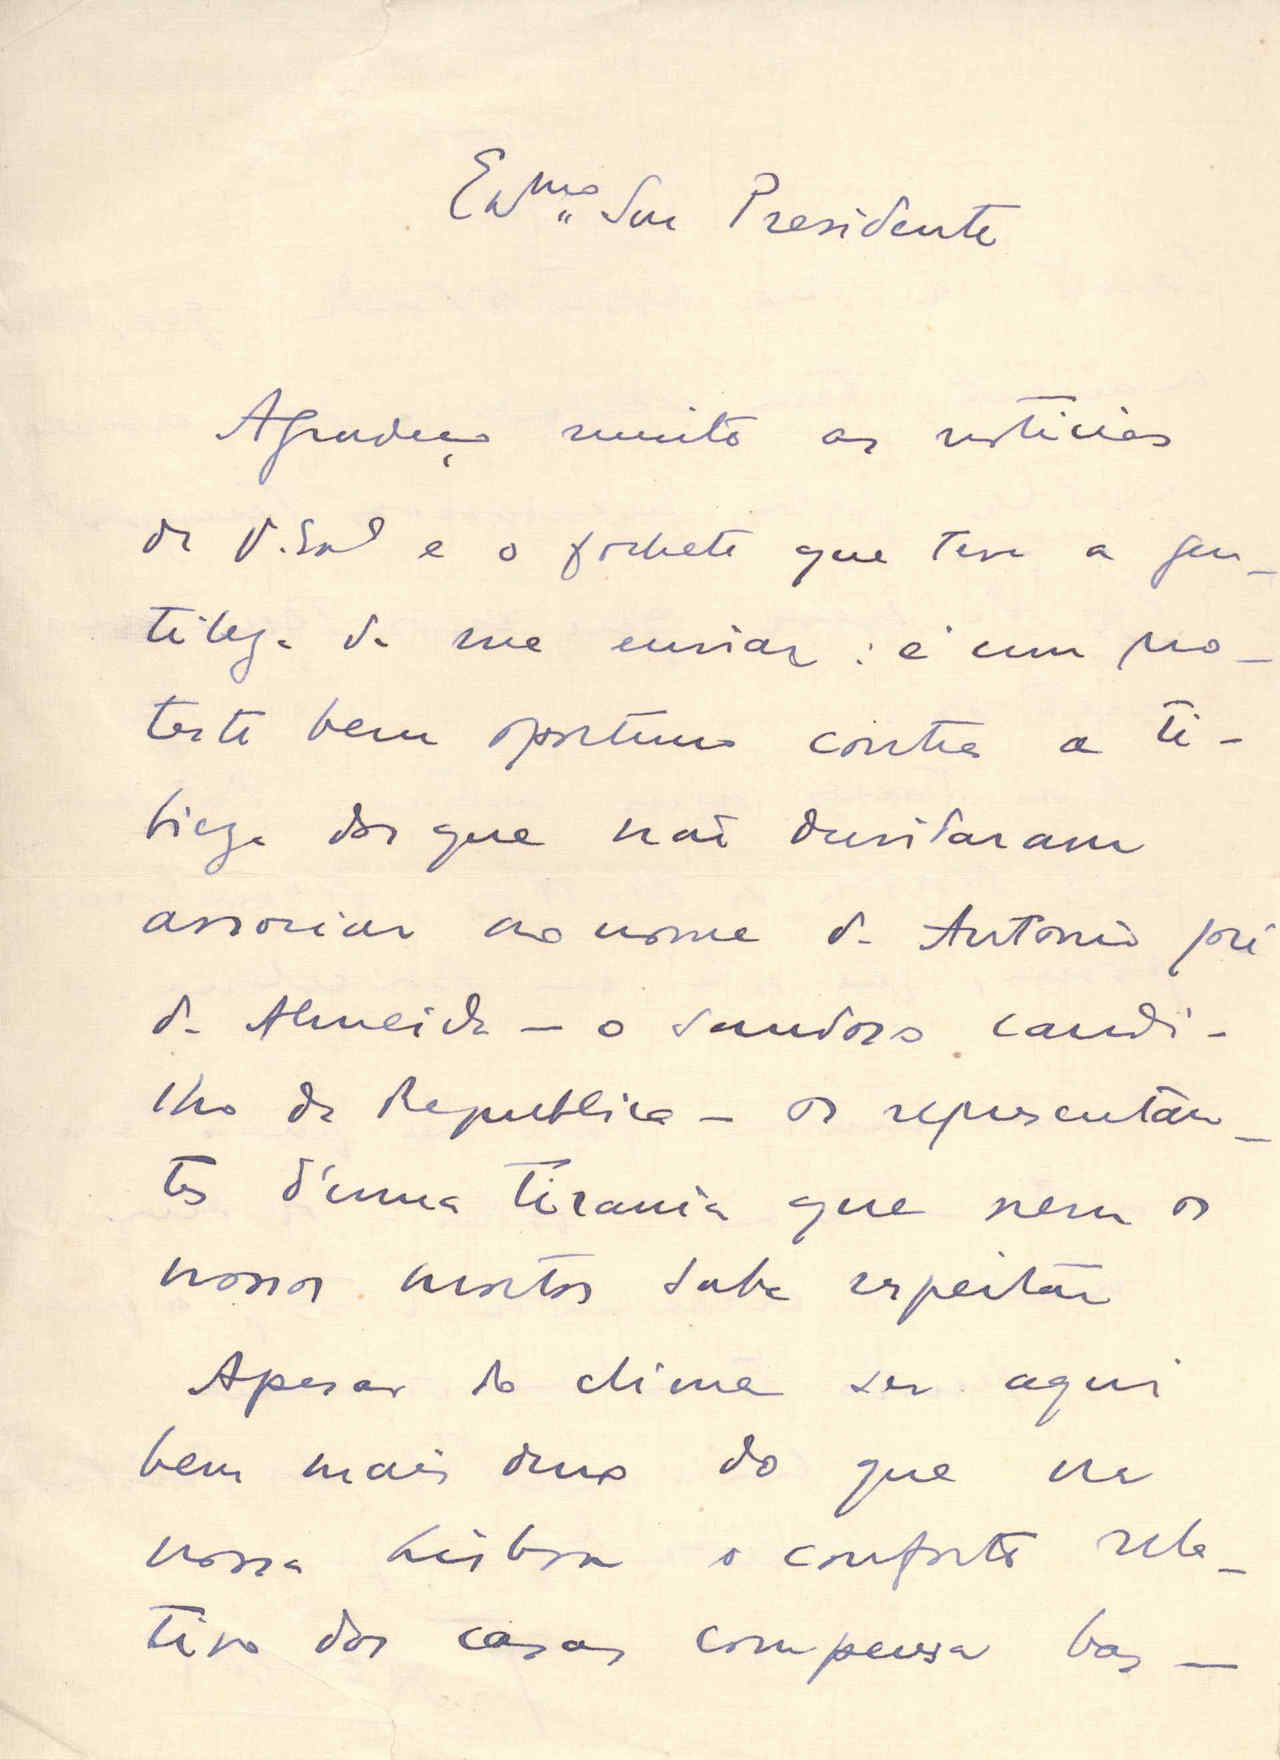 Exmo Snr Presidente
Agradeço muito as noticias
de V. Exª e o folheto que teve a gen-
tileza de me enviar: é um pro-
testo bem oportuno contra a ti-
bieza dos que não duvidaram
associar ao nome de Antonio José
de Almeida — o saudoso caudi-
lho da Republica — os representan-
tes d'uma tirania que nem os
nossos mortos sabe respeitar
Apesar do clima ser aqui
bem mais duro do que na
nossa Lisboa o conforto rela-
tivo das casas compensa bas-